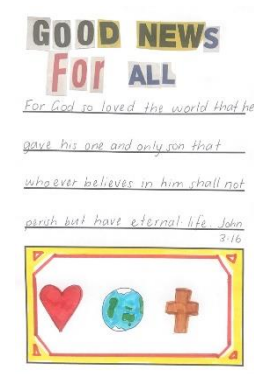 GOOD NEWS
For ALL
For God so loved the world that he
gave his one and only son that
whoever believes in him shall not
perish but have eternal life. John
3:16